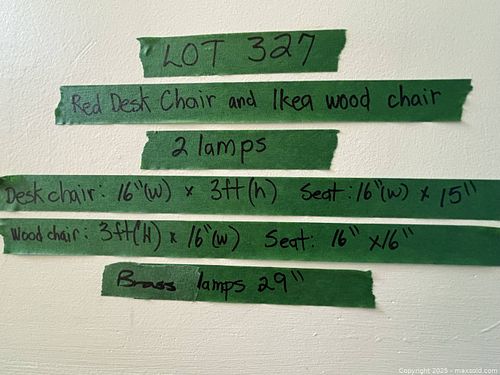 LOT 327
Red Desk Chair and Ikea wood chair
2 lamps
Desk chair: 16"(w) x 3ft(h) Seat: 16"(w) x 15"
Wood chair: 3ft(H) x 16"(w) Seat: 16" x 16"
Brass lamps 29"
Copyright 2025 - maxsold.com